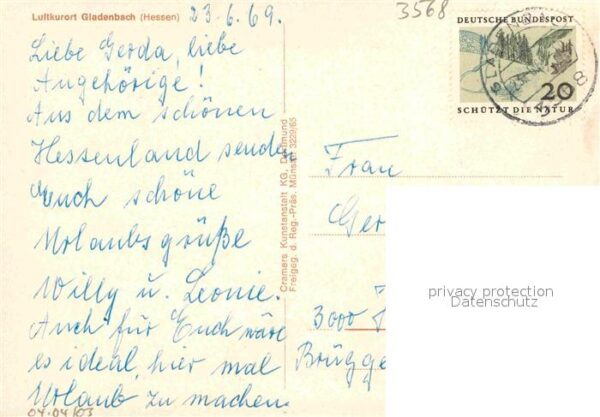 Luftkurort Gladenbach (Hessen)
23.6.69.
3568
Liebe Gerda, liebe
Angehörige!
Aus dem schönen
Hessenland senden
Euch schöne
Urlaubsgrüße
Willy u. Leonie.
Auch für Euch wäre
es ideal, hier mal
Urlaub zu machen.
04.04/03
Cramers Kunstanstalt KG, Dortmund
Freigeg. d. Reg.-Präs. Münster 3229/65
DEUTSCHE BUNDESPOST
20
SCHÜTZT DIE NATUR
Frau
Ger
3000
Brügge
privacy protection
Datenschutz